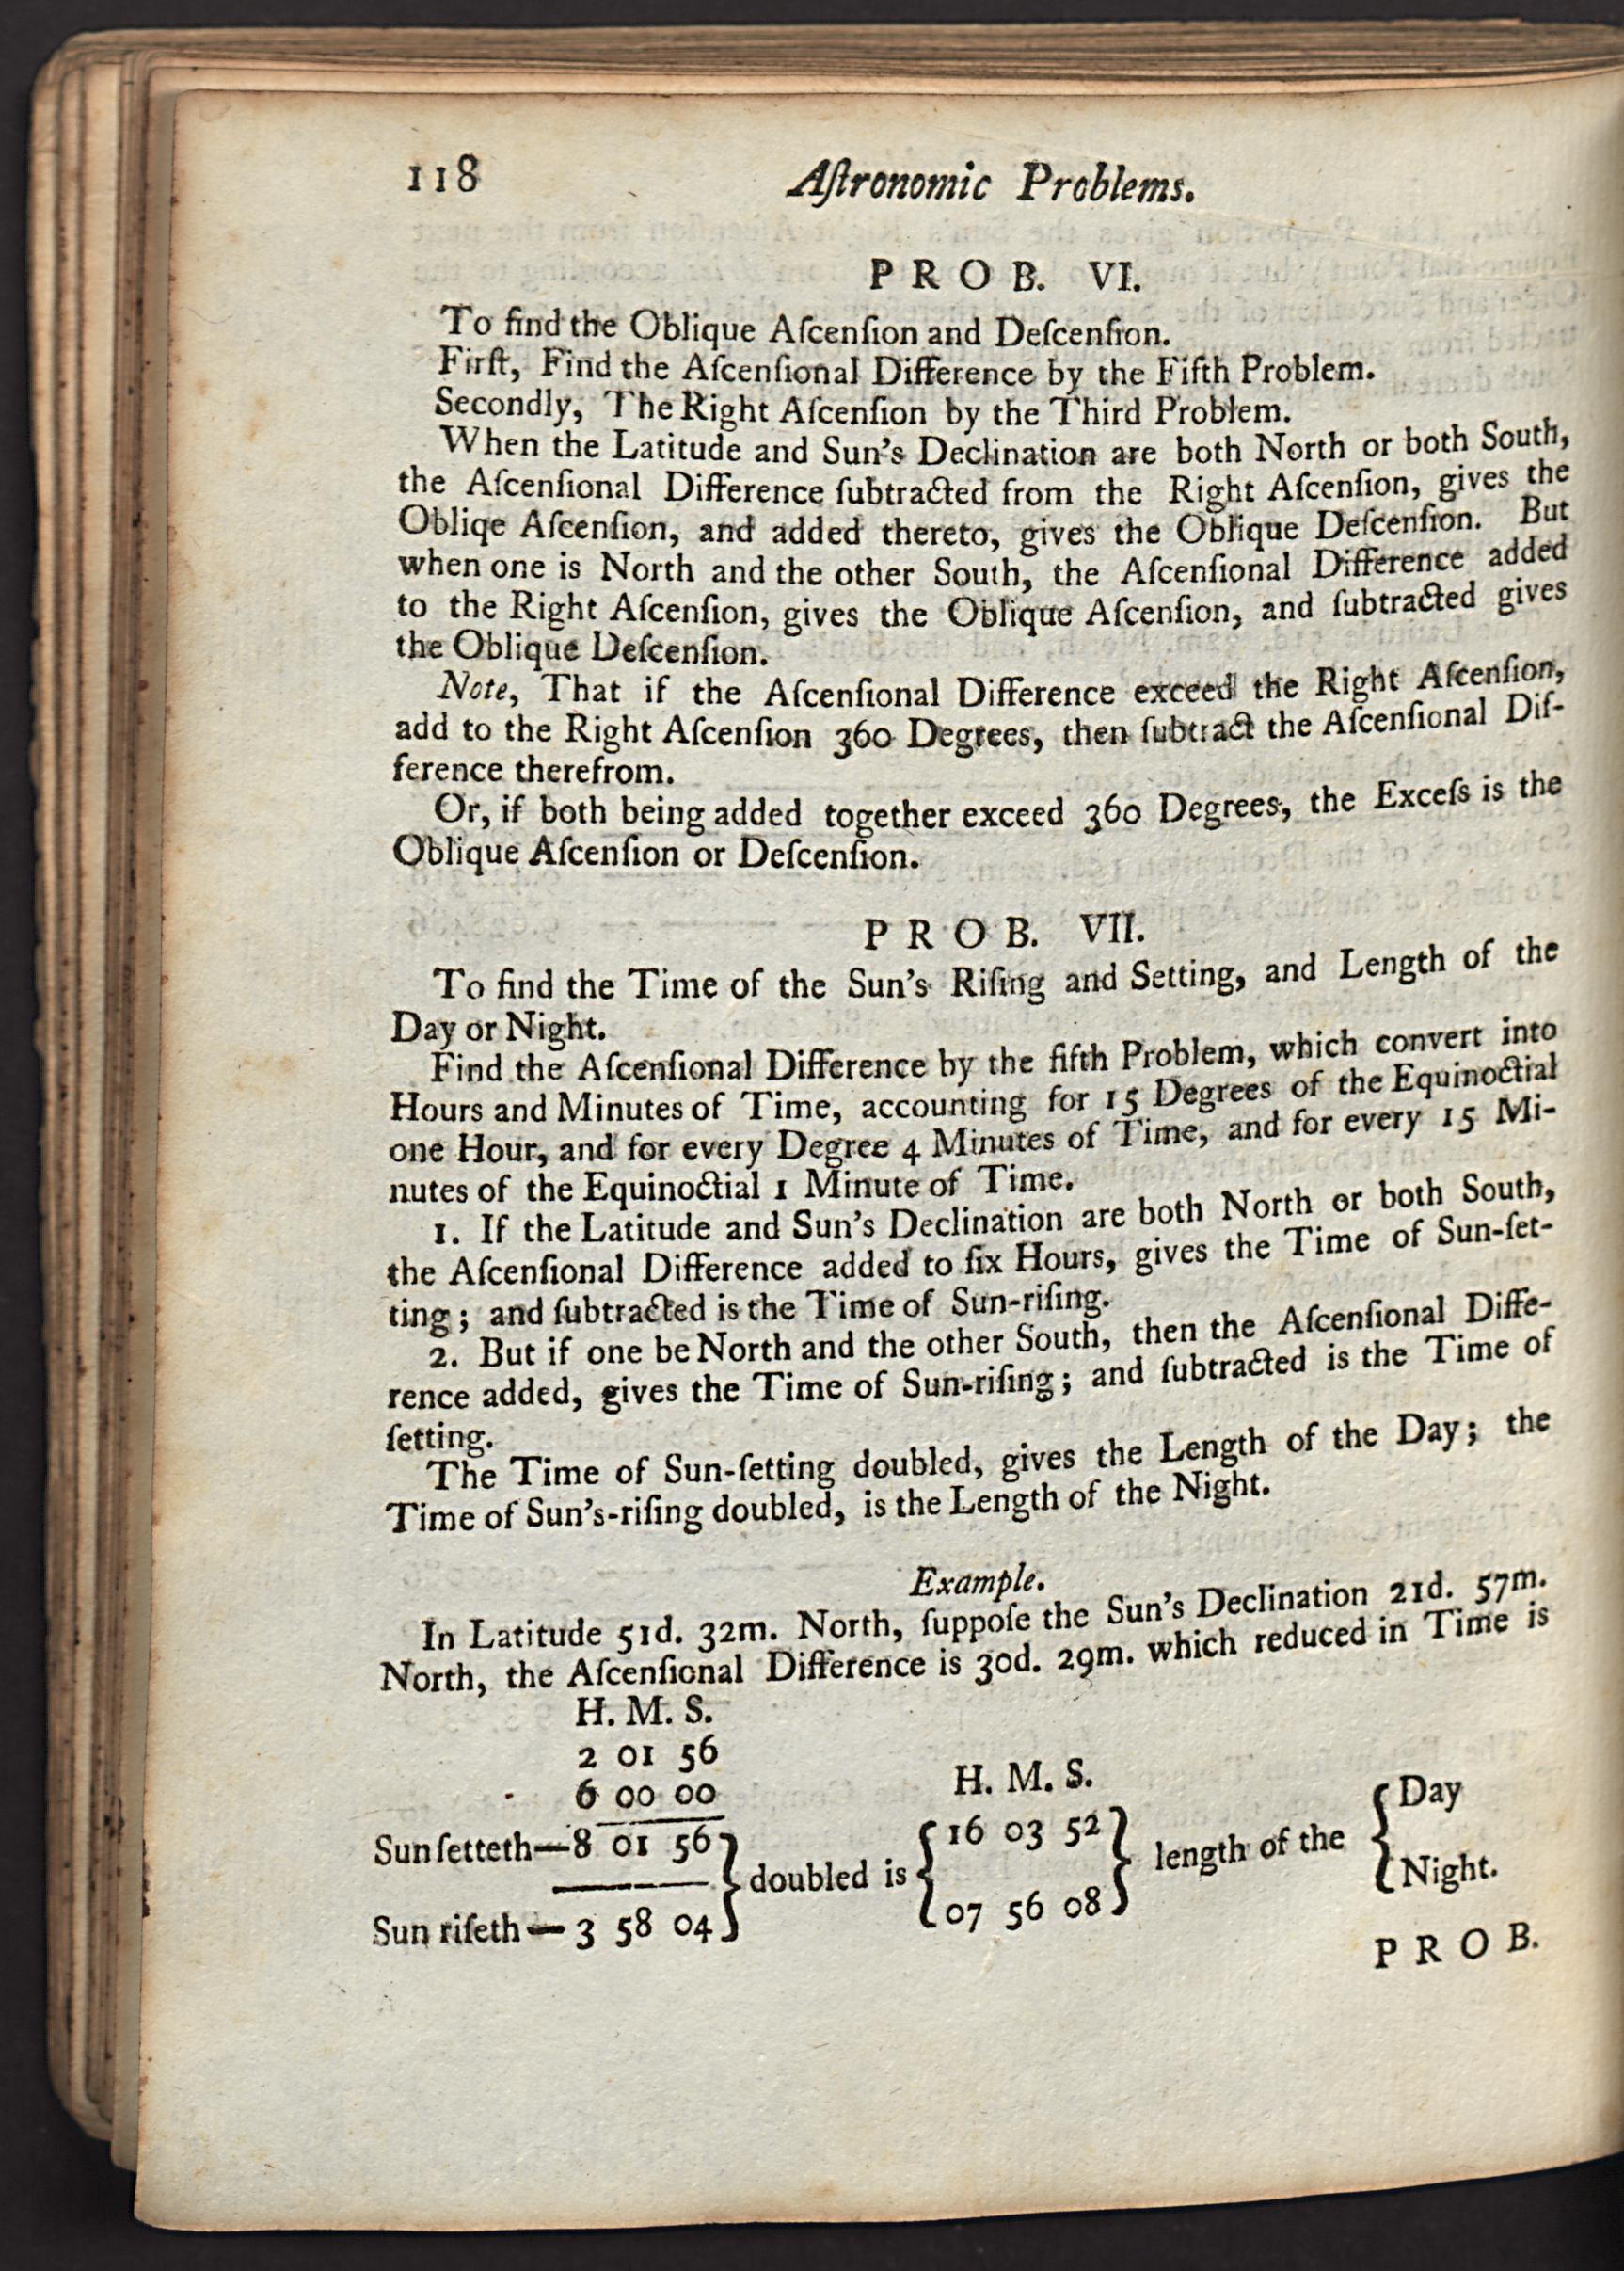 118 Aſtronomic Problems.
P R O B. VI.
To find the Oblique Aſcenſion and Deſcenſion.
Firſt, Find the Aſcenſional Difference by the Fifth Problem.
Secondly, The Right Aſcenſion by the Third Problem.
When the Latitude and Sun's Declination are both North or both South,
the Aſcenſional Difference ſubtracted from the Right Aſcenſion, gives the
Obliqe Aſcenſion, and added thereto, gives the Oblique Deſcenſion. But
when one is North and the other South, the Aſcenſional Difference added
to the Right Aſcenſion, gives the Oblique Aſcenſion, and ſubtracted gives
the Oblique Deſcenſion.
Note, That if the Aſcenſional Difference exceed the Right Aſcenſion,
add to the Right Aſcenſion 360 Degrees, then ſubtract the Aſcenſional Dif-
ference therefrom.
Or, if both being added together exceed 360 Degrees, the Exceſs is the
Oblique Aſcenſion or Deſcenſion.
P R O B. VII.
To find the Time of the Sun's Riſing and Setting, and Length of the
Day or Night.
Find the Aſcenſional Difference by the fifth Problem, which convert into
Hours and Minutes of Time, accounting for 15 Degrees of the Equinoctial
one Hour, and for every Degree 4 Minutes of Time, and for every 15 Mi-
nutes of the Equinoctial 1 Minute of Time.
1. If the Latitude and Sun's Declination are both North or both South,
the Aſcenſional Difference added to ſix Hours, gives the Time of Sun-ſet-
ting; and ſubtracted is the Time of Sun-riſing.
2. But if one be North and the other South, then the Aſcenſional Diffe-
rence added, gives the Time of Sun-riſing; and ſubtracted is the Time of
ſetting.
The Time of Sun-ſetting doubled, gives the Length of the Day; the
Time of Sun's-riſing doubled, is the Length of the Night.
Example.
In Latitude 51d. 32m. North, ſuppoſe the Sun's Declination 21d. 57m.
North, the Aſcenſional Difference is 30d. 29m. which reduced in Time is
H. M. S.
2 01 56
6 00 00 H. M. S.
Sun ſetteth—8 01 56 } doubled is { 16 03 52 } length of the { Day
Sun riſeth—3 58 04 } { 07 56 08 } { Night.
P R O B.